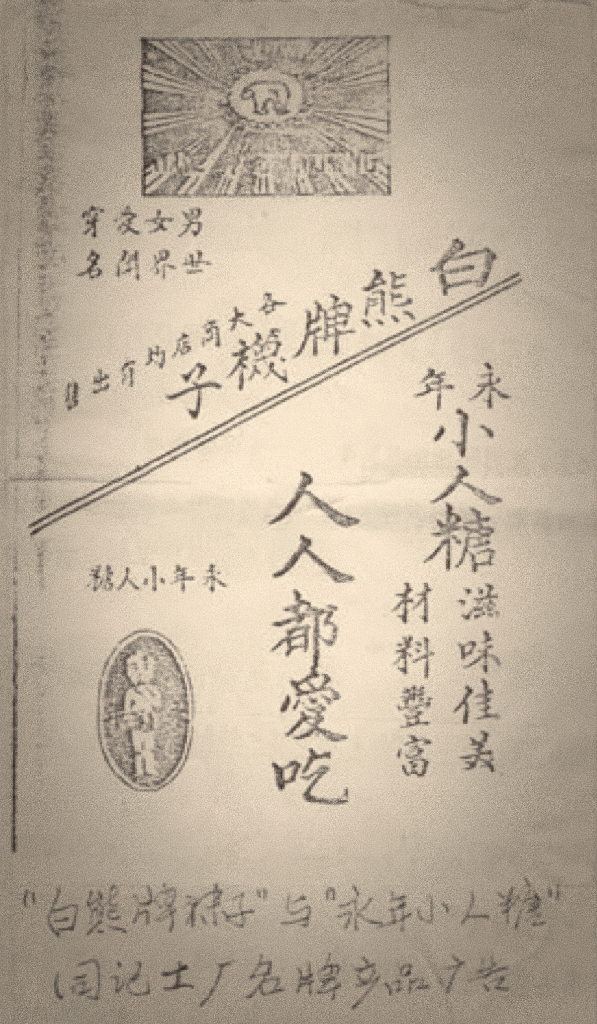 男女愛穿
世界聞名
白熊牌襪子
各大商店均有出售
永年
小人糖
滋味佳美
材料豐富
人人都愛吃
永年小人糖
"白熊牌袜子"与"永年小人糖"
同记工厂名牌产品广告